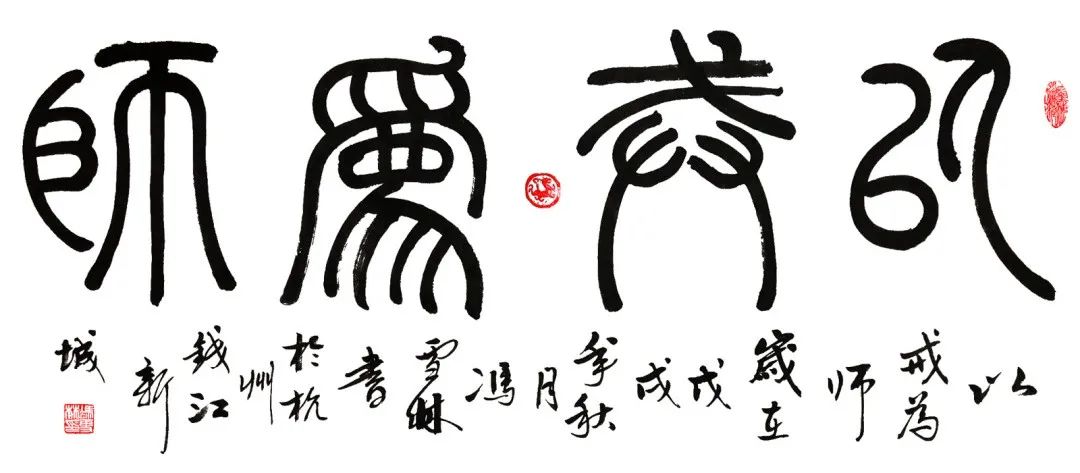 以戒為師
以戒為师歲在戊戌年秋月馮雪林書於杭州钱江新城